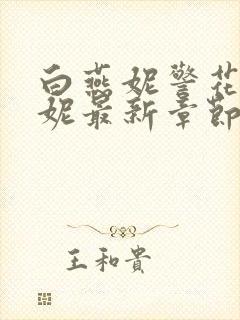 白燕妮警花
妮最新章節
王和貴